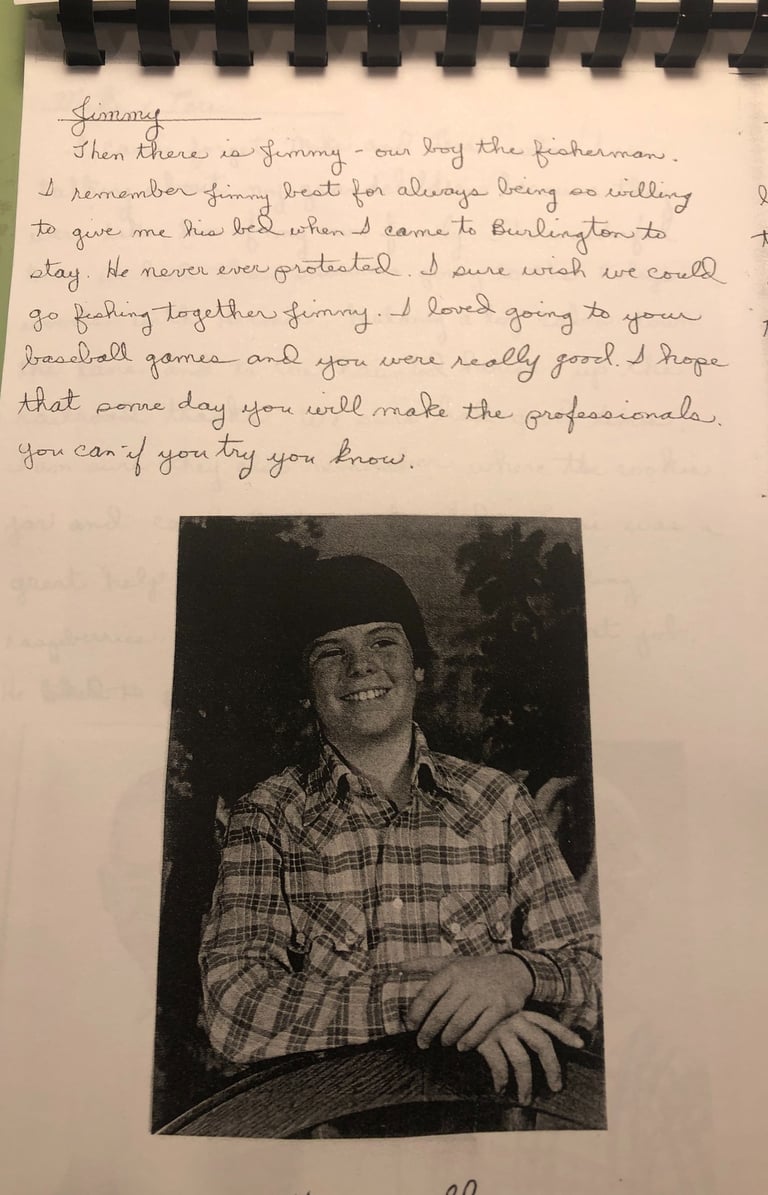 Jimmy
Then there is Jimmy - our boy the fisherman.
I remember Jimmy best for always being so willing
to give me his bed when I came to Burlington to
stay. He never ever protested. I sure wish we could
go fishing together Jimmy. I loved going to your
baseball games and you were really good. I hope
that some day you will make the professionals.
You can if you try you know.